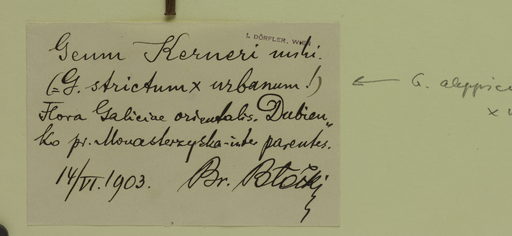 I. DÖRFLER, WIEN
Geum Kerneri mihi.
(=G. strictum x urbanum!)
Flora Galiciae orientalis. Dubien„
ko pr. Monasterzyska inter parentes.
14/VI. 1903. Br. Błocki
← G. aleppic
x